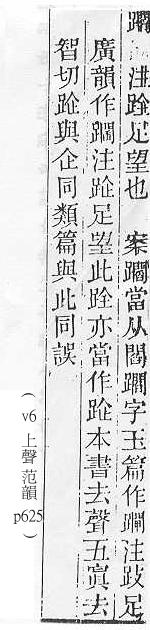 注跧足望也 案 當从閻 字玉篇作 注跂足
廣韻作 注䟸足望此跧亦當作䟸本書去聲五寘去
智切䟸與企同類篇與此同誤
( v6 上聲 范韻 p625 )